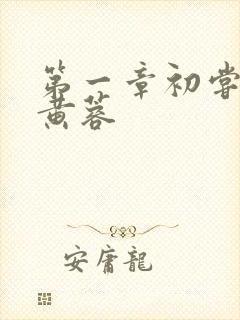 第一章初尝
黄蓉
安庸龍